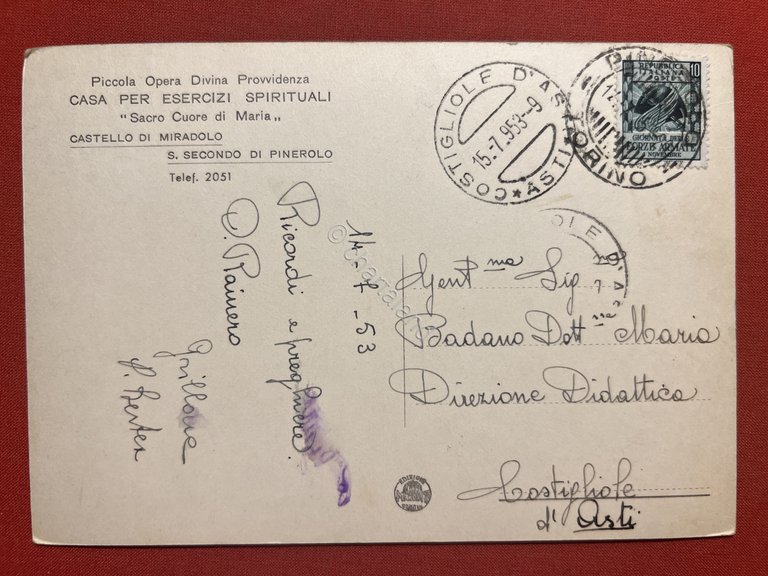 Piccola Opera Divina Provvidenza
CASA PER ESERCIZI SPIRITUALI
"Sacro Cuore di Maria„
CASTELLO DI MIRADOLO
S. SECONDO DI PINEROLO
Telef. 2051
COSTIGLIOLE D'ASTI
15-7.953-9
★ASTI★
TORINO
REPUBBLICA
ITALIANA
POSTE
10
GIORNATA DELLE
FORZE ARMATE
4 NOVEMBRE
OLE D'AS
14-7-53
Ricordi e preghiere.
D. Rainero
Gent.ma Sig.
Badano Dott.ssa Maria
Direzione Didattica
Costigliole
d'Asti